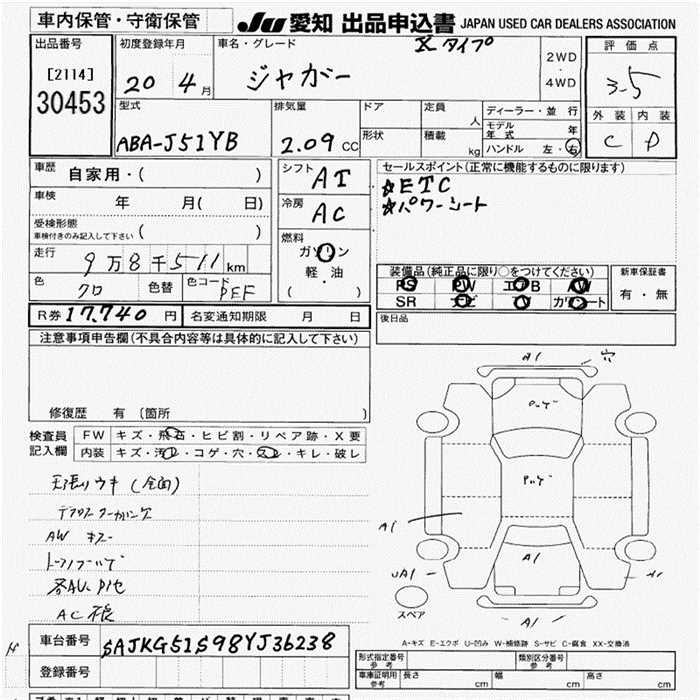 車内保管・守衛保管
JU 愛知 出品申込書 JAPAN USED CAR DEALERS ASSOCIATION
出品番号
[2114]
30453
初度登録年月
20 4月
車名・グレード
Xタイプ
ジャガー
2WD
・
4WD
評価点
3-5
外装 内装
C D
型式
ABA-J51YB
排気量
2.09 CC
ドア
形状
定員 人
積載 kg
ディーラー・並行
モデル年式 年
ハンドル 左・右
車歴 自家用・( )
車検 年 月( 日)
受検形態
車検付きのみ記入して下さい ( )
走行 9万8千511km
色 クロ 色替 色コード PEF
シフト AT
冷房 AC
燃料
ガソリン
軽・油
( )
セールスポイント(正常に機能するものに限ります)
☆ETC
☆パワーシート
装備品(純正品に限り○をつけてください)
PS PW エアB AW
SR ナビ TV カワシート
新車保証書
有・無
R券 17,740円 名変通知期限 月 日
後日品
注意事項申告欄(不具合内容等は具体的に記入して下さい)
修復歴 有(箇所 )
検査員
記入欄
FW キズ・飛石・ヒビ割・リペア跡・X要
内装 キズ・汚れ・コゲ・穴・スレ・キレ・破レ
天張りウキ(全面)
AW キズ
AC
A1 穴
A1
A1
UA1
A1
スペア
A-キズ E-エクボ U-凹み W-補修跡 S-サビ C-腐食 XX-交換済
車台番号 SAJKG51S98YJ36238
登録番号
形式指定番号 参考
類別区分番号 参考
車庫証明用 参考 長さ cm 幅 cm 高さ cm